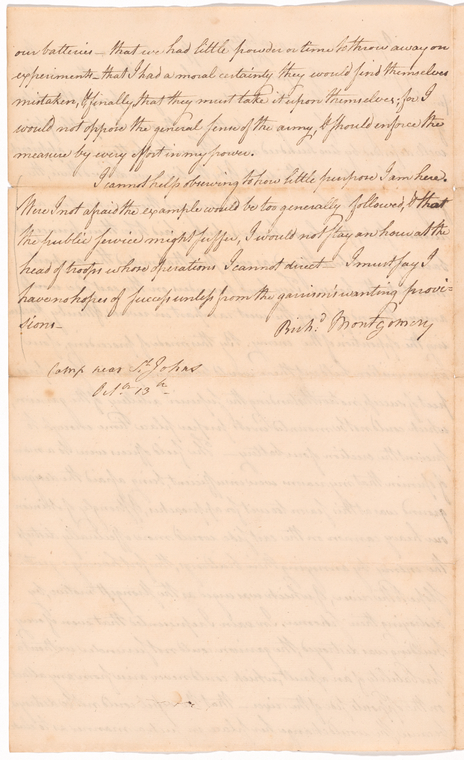 our batteries – that we had little powder or time to throw away on
experiments – that I had a moral certainty they would find themselves
mistaken, & finally, that they must take it upon themselves; for I
would not oppose the general sense of the army, & should enforce the
measure by every effort in my power.
I cannot help observing to how little purpose I am here.
Were I not afraid the example would be too generally followed, & that
the public service might suffer, I would not stay an hour at the
head of troops whose operations I cannot direct – I must say I
have no hopes of success unless from the garrison's wanting provi-
sions –
Rich.d Montgomery
Camp near St. Johns
Octr. 13th